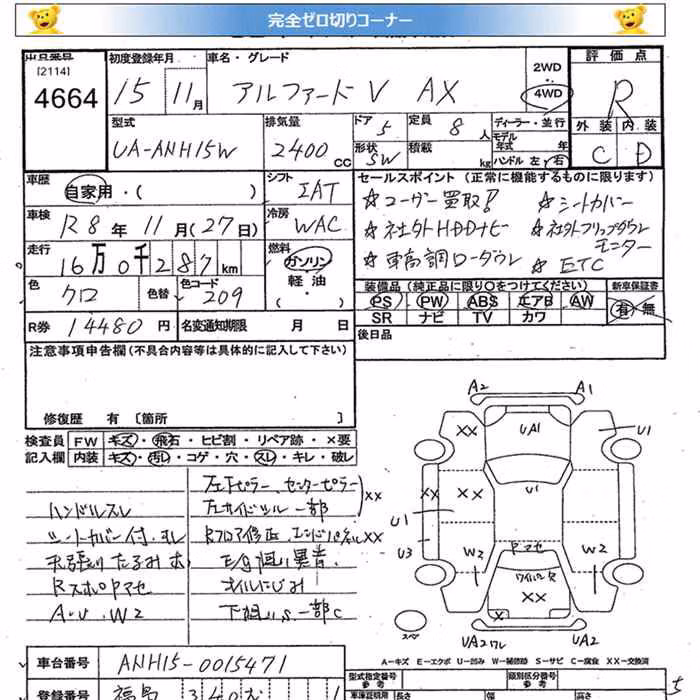 完全ゼロ切りコーナー
出品番号 初度登録年月 車名・グレード 2WD 評価点
[2114]
4664 15 11月 アルファードV AX 4WD R
型式 排気量 ドア 5 定員 8人 ディーラー・並行 外装 内装
UA-ANH15W 2400cc 形状 SW 積載 kg モデル年式 年式 ハンドル 左・右 C D
車歴 自家用・( ) シフト IAT セールスポイント (正常に機能するものに限ります)
☆ユーザー買取! ☆シートカバー
車検 R8年11月(27日) 冷房 WAC ☆社外HDDナビ ☆社外フリップダウンモニター
☆車高調ローダウン ☆ETC
走行 16万0千287km 燃料 ガソリン・軽油・( )
装備品 (純正品に限り○をつけてください) 新車保証書
色 クロ 色替 色コード 209 PS PW ABS エアB AW 有・無
SR ナビ TV カワ
R券 14480円 名変通知期限 月 日 後日品
注意事項申告欄(不具合内容等は具体的に記入して下さい)
修復歴 有〔箇所 〕
検査員 FW キズ・飛石・ヒビ割・リペア跡・×要
記入欄 内装 キズ・汚レ・コゲ・穴・スレ・キレ・破レ
左Fピラー、センターピラー
ハンドルスレ 左サイドシル一部 XX
シートカバー付、ヨレ Rフロア修正、エンドパネルXX
天張りたるみ大 E/g廻り異音、
RスポPマセ オイルにじみ
A・U、W2 下廻りS一部C
A2 A1
XX UA1 U1
XX XX U1
U1
U3 W2 Pマセ W2
ワイパー欠
XX
スペア UA2ワレ UA2
A－キズ E－エクボ U－凹み W－補修跡 S－サビ C－腐食 XX－交換済
車台番号 ANH15-0015471
型式指定番号 参考 類別区分番号 参考
登録番号 福島 340 1 車検証明用 長さ 幅 高さ